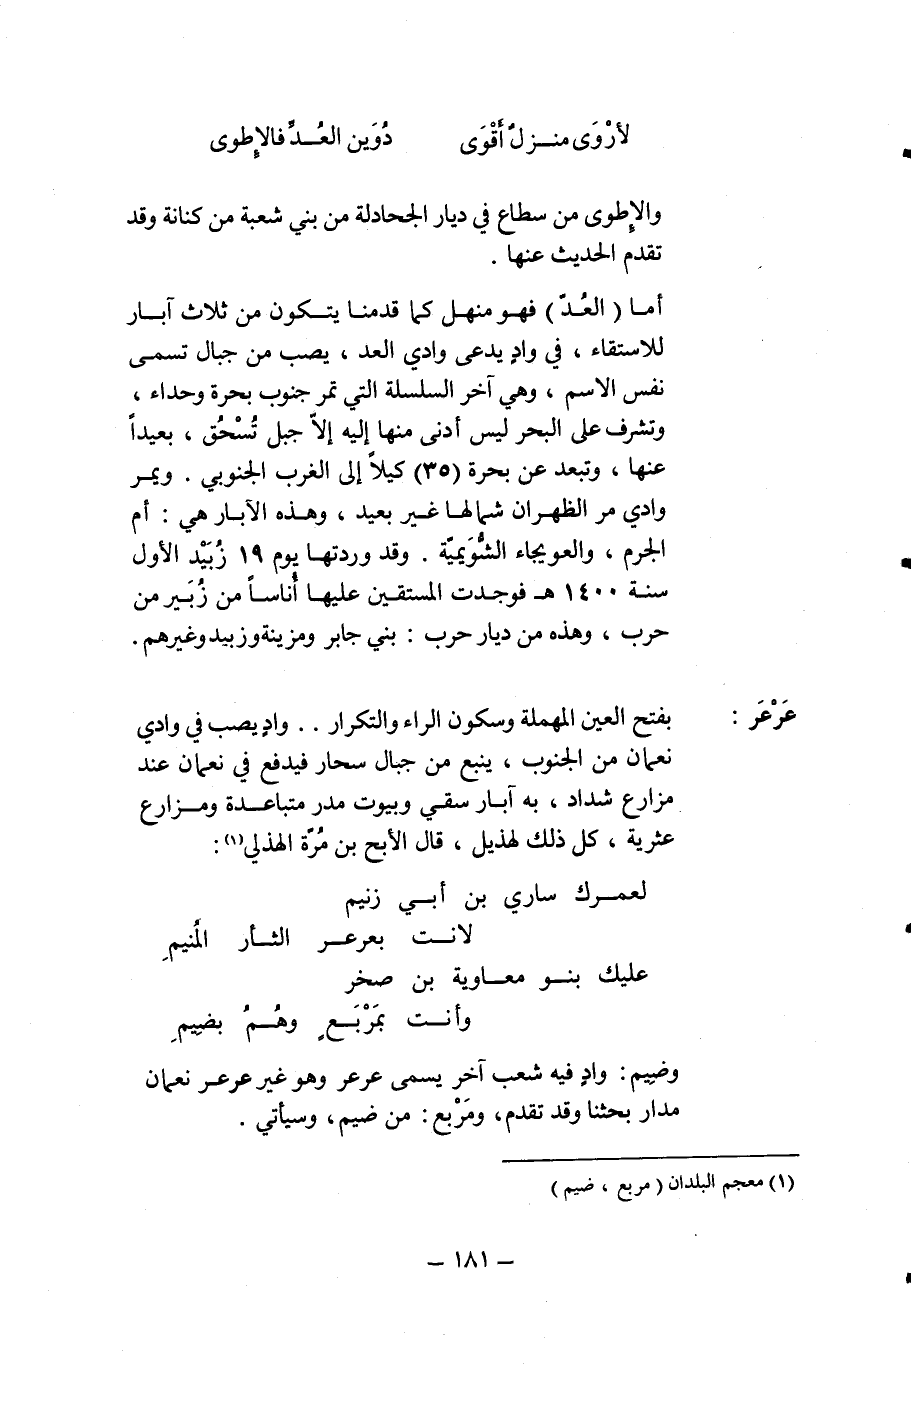 لأرْوَى منـزلٌ أَقْوَى دُوَين العُـدِّ فالإِطوى
والإِطوى من سطاع في ديار الجحادلة من بني شعبة من كنانة وقد
تقدم الحديث عنها .
أما ( العُدّ ) فهو منهل كما قدمنا يتكون من ثلاث آبار
للاستقاء ، في وادٍ يدعى وادي العد ، يصب من جبال تسمى
نفس الاسم ، وهي آخر السلسلة التي تمر جنوب بحرة وحداء ،
وتشرف على البحر ليس أدنى منها إليه إلاّ جبل تُسْحُق ، بعيداً
عنها ، وتبعد عن بحرة (٣٥) كيلاً إلى الغرب الجنوبي . ويمر
وادي مر الظهران شمالها غير بعيد ، وهذه الآبار هي : أم
الجرم ، والعويجاء الشُّوَيميّة . وقد وردتها يوم ١٩ زُبَيْد الأول
سنة ١٤٠٠ هـ فوجدت المستقين عليها أُناساً من زُبَير من
حرب ، وهذه من ديار حرب : بني جابر ومزينة وزبيد وغيرهم .
عَرْعَر : بفتح العين المهملة وسكون الراء والتكرار . . وادٍ يصب في وادي
نعمان من الجنوب ، ينبع من جبال سحار فيدفع في نعمان عند
مزارع شداد ، به آبار سقي وبيوت مدر متباعدة ومزارع
عثرية ، كل ذلك لهذيل ، قال الأبح بن مُرّة الهذلي(١) :
لعمرك ساري بن أبي زنيم
لانت بعرعر الثأر المُنيمِ
عليك بنو معاوية بن صخر
وأنت بمَرْبَعٍ وهُمُ بضيمِ
وضيم : وادٍ فيه شعب آخر يسمى عرعر وهو غير عرعر نعمان
مدار بحثنا وقد تقدم، ومَرْبع : من ضيم، وسيأتي .
(١) معجم البلدان ( مربع ، ضيم )
– ١٨١ –